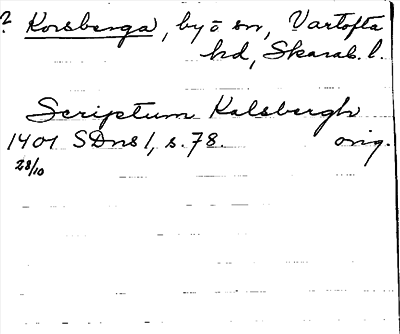 ? Korsberga, by ö sn, Vartofta
hd, Skarab. l.
Scriptum Kalsbergh
1401 SDns 1, s. 78. orig.
28/10